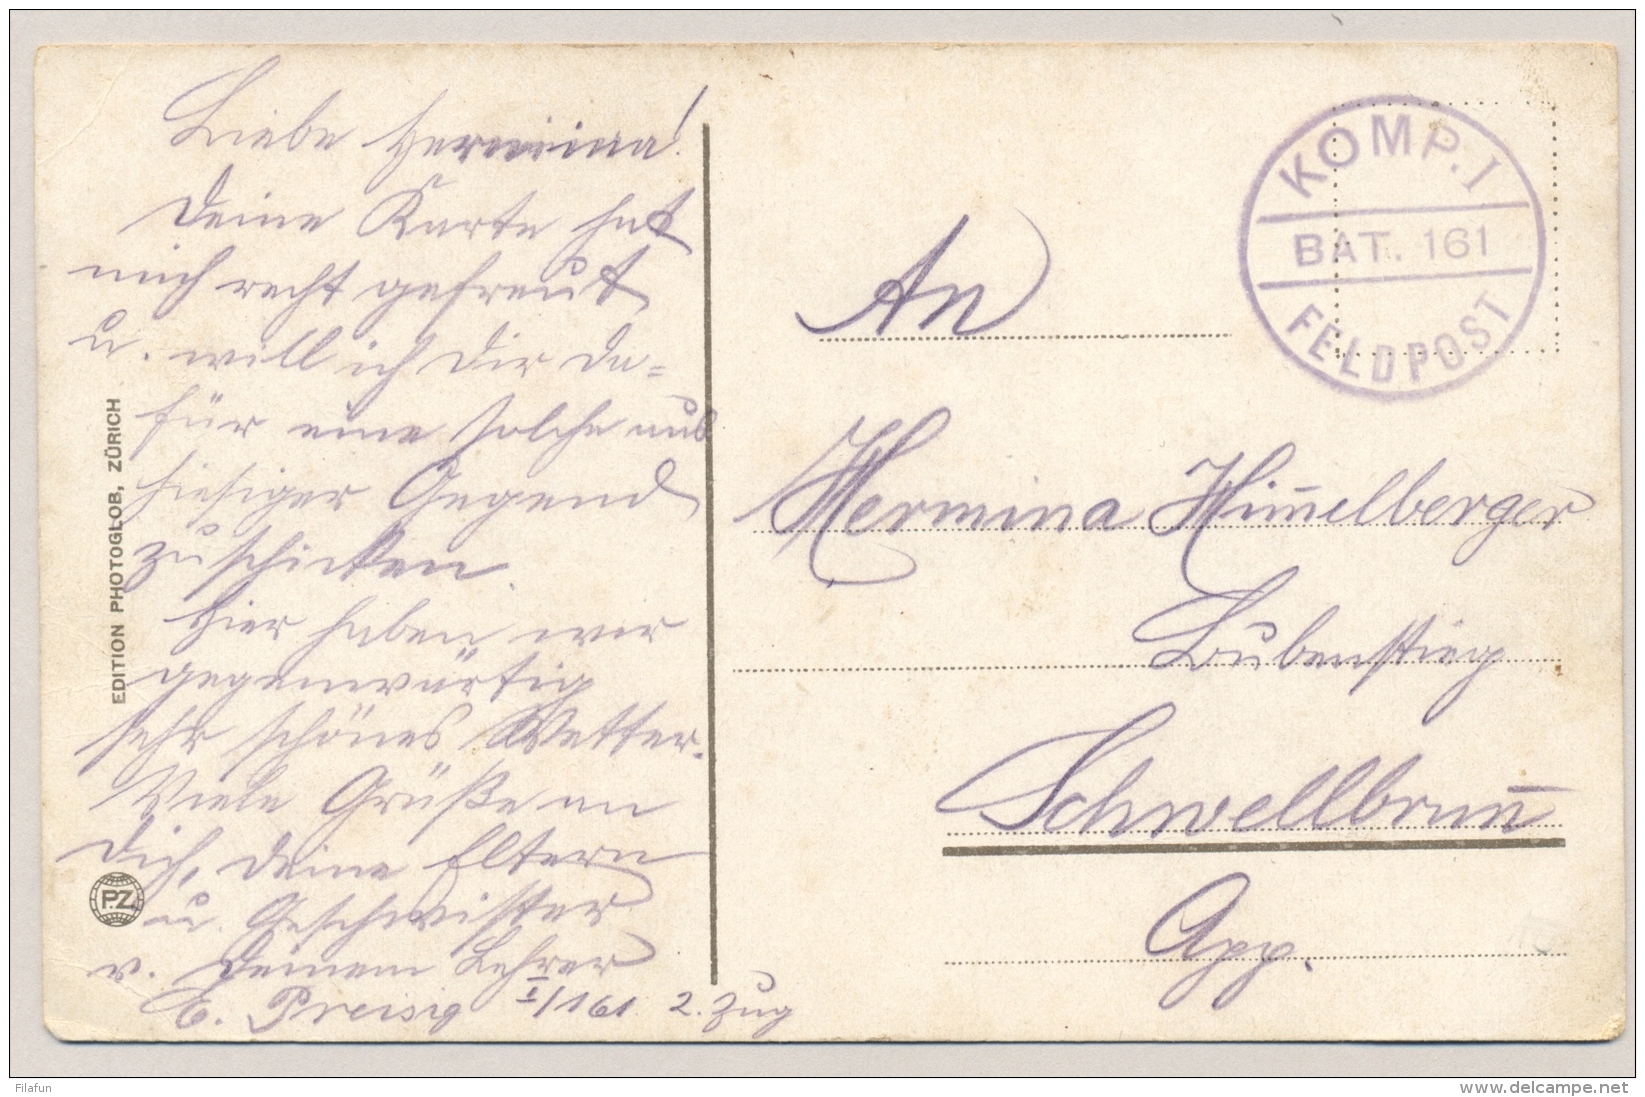 Liebe Hermina!
Deine Karte hat
mich recht gefreut
u. will ich Dir da=
für eine solche aus
hiesiger Gegend
zuschicken.
Hier haben wir
gegenwärtig
sehr schönes Wetter.
Viele Grüße an
Dich, Deine Eltern
u. Geschwister
v. Deinem Lehrer
E. Preisig I/161 2. Zug
EDITION PHOTOGLOB, ZÜRICH
P.Z
KOMP. I
BAT. 161
FELDPOST
An
Hermina Him̄elberger
Lubenstieg
Schwellbrun̄
App.
Filafun
delcampe.net